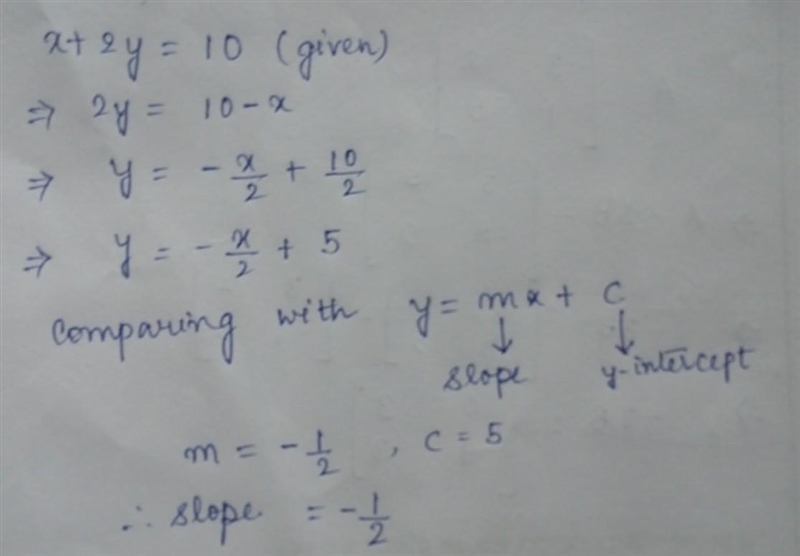 x + 2y = 10 (given)
⇒ 2y = 10 - x
⇒ y = - x/2 + 10/2
⇒ y = - x/2 + 5
Comparing with y = mx + c
↓ ↓
slope y-intercept
m = - 1/2 , c = 5
∴ slope = - 1/2